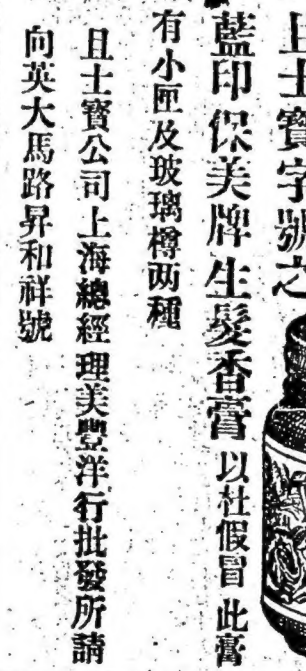 且士寶字號之
藍印保美牌生髮香膏以杜假冒此膏
有小匣及玻璃樽两種
且士寶公司上海總經理美豐洋行批發所請
向英大馬路昇和祥號